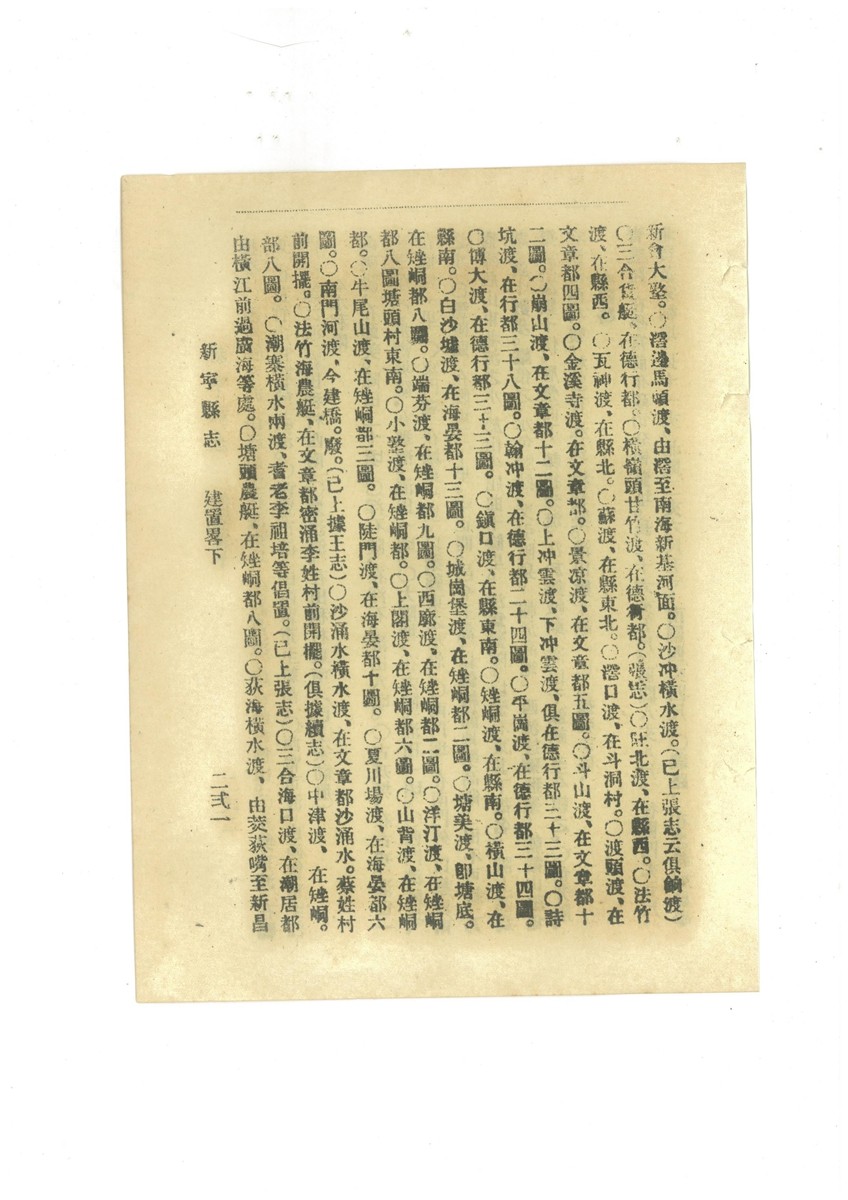 新會大墪。〇滘邊馬頓渡、由滘至南海新基河面。〇沙冲橫水渡。(已上張志云俱餉渡)
〇三合貨艇、在德行都。〇橫嶺頭甘竹渡、在德行都。(張志)〇北渡、在縣西。〇法竹
渡、在縣西。〇瓦神渡、在縣北。〇蘇渡、在縣東北。〇滘口渡、在斗洞村。〇渡頭渡、在
文章都四圖。〇金溪寺渡。在文章都。〇景凉渡、在文章都五圖。〇斗山渡、在文章都十
二圖。〇崩山渡、在文章都十二圖。〇上冲雲渡、下冲雲渡、俱在德行都三十三圖。〇詩
坑渡、在行都三十八圖。〇翰冲渡、在德行都二十四圖。〇平崗渡、在德行都三十四圖。
〇博大渡、在德行都三十三圖。〇鎭口渡、在縣東南。〇矬峒渡、在縣南。〇橫山渡、在
縣南。〇白沙墟渡、在海晏都十三圖。〇城崗堡渡、在矬峒都二圖。〇塘美渡、卽塘底。
在矬峒都八圖。〇端芬渡、在矬峒都九圖。〇西廓渡、在矬峒都二圖。〇洋汀渡、在矬峒
都八圖塘頭村東南。〇小墪渡、在矬峒都。〇上閣渡、在矬峒都六圖。〇山背渡、在矬峒
都。〇牛尾山渡、在矬峒都三圖。〇陡門渡、在海晏都十圖。〇夏川場渡、在海晏都六
圖。〇南門河渡、今建橋。廢。(已上據王志)〇沙涌水橫水渡、在文章都沙涌水。蔡姓村
前開擺。〇法竹海農艇、在文章都密涌李姓村前開擺。(俱據續志)〇中津渡、在矬峒。
部八圖。〇潮寨橫水兩渡、耆老李祖培等倡置。(已上張志)〇三合海口渡、在潮居都
由橫江前過廣海等處。〇塘頭農艇、在矬峒都八圖。〇荻海橫水渡、由茭荻嘴至新昌
新寧縣志　建置畧下　二弎一